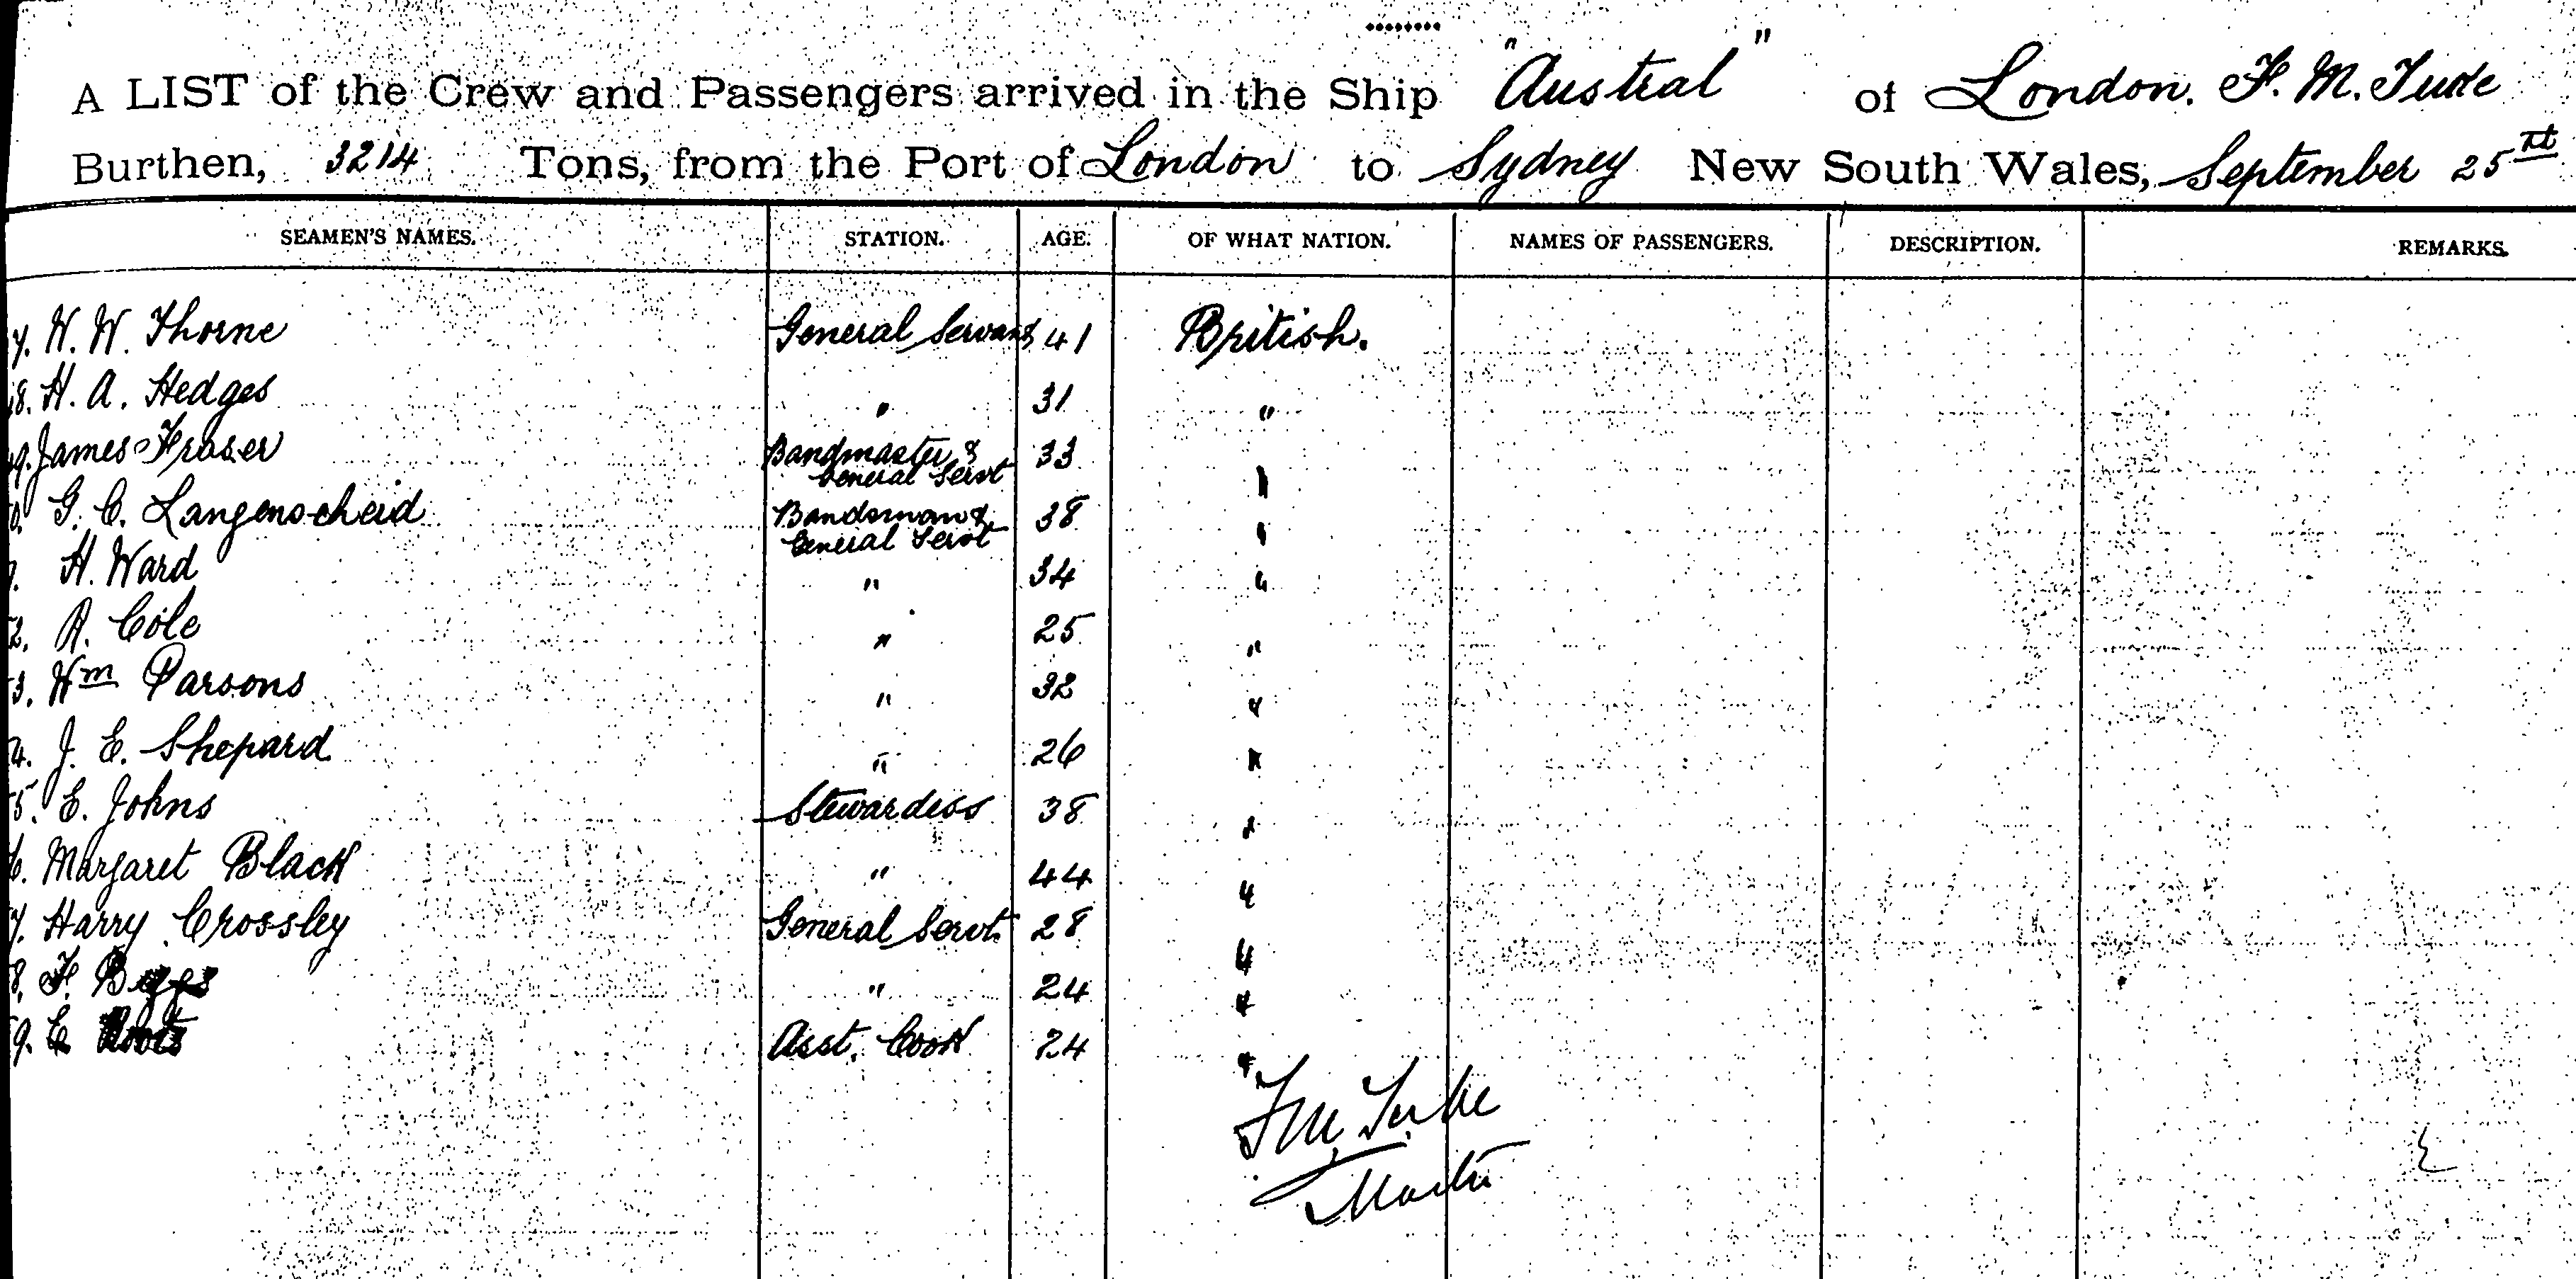 A LIST of the Crew and Passengers arrived in the Ship "Austral" of London. F. M. Tuke
Burthen, 3214 Tons, from the Port of London to Sydney New South Wales, September 25
SEAMEN'S NAMES. STATION. AGE. OF WHAT NATION. NAMES OF PASSENGERS. DESCRIPTION. REMARKS.
7. W. W. Thorne General Servant 41 British.
8. H. A. Hedges " 31 "
9. James Fraser Bandmaster & 33 "
General Servt
0. G. C. Langenscheid Bandsman & 38 "
General Servt
1. H. Ward " 34 "
2. A. Cole " 25 "
3. Wm Parsons " 32 "
4. J. E. Shepard " 26 "
5. E. Johns Stewardess 38 "
6. Margaret Black " 44 "
7. Harry Crossley General Servt. 28 "
8. F. Biggs " 24 "
9. C. Asst. Cook 24 "
F M Tuke
Master